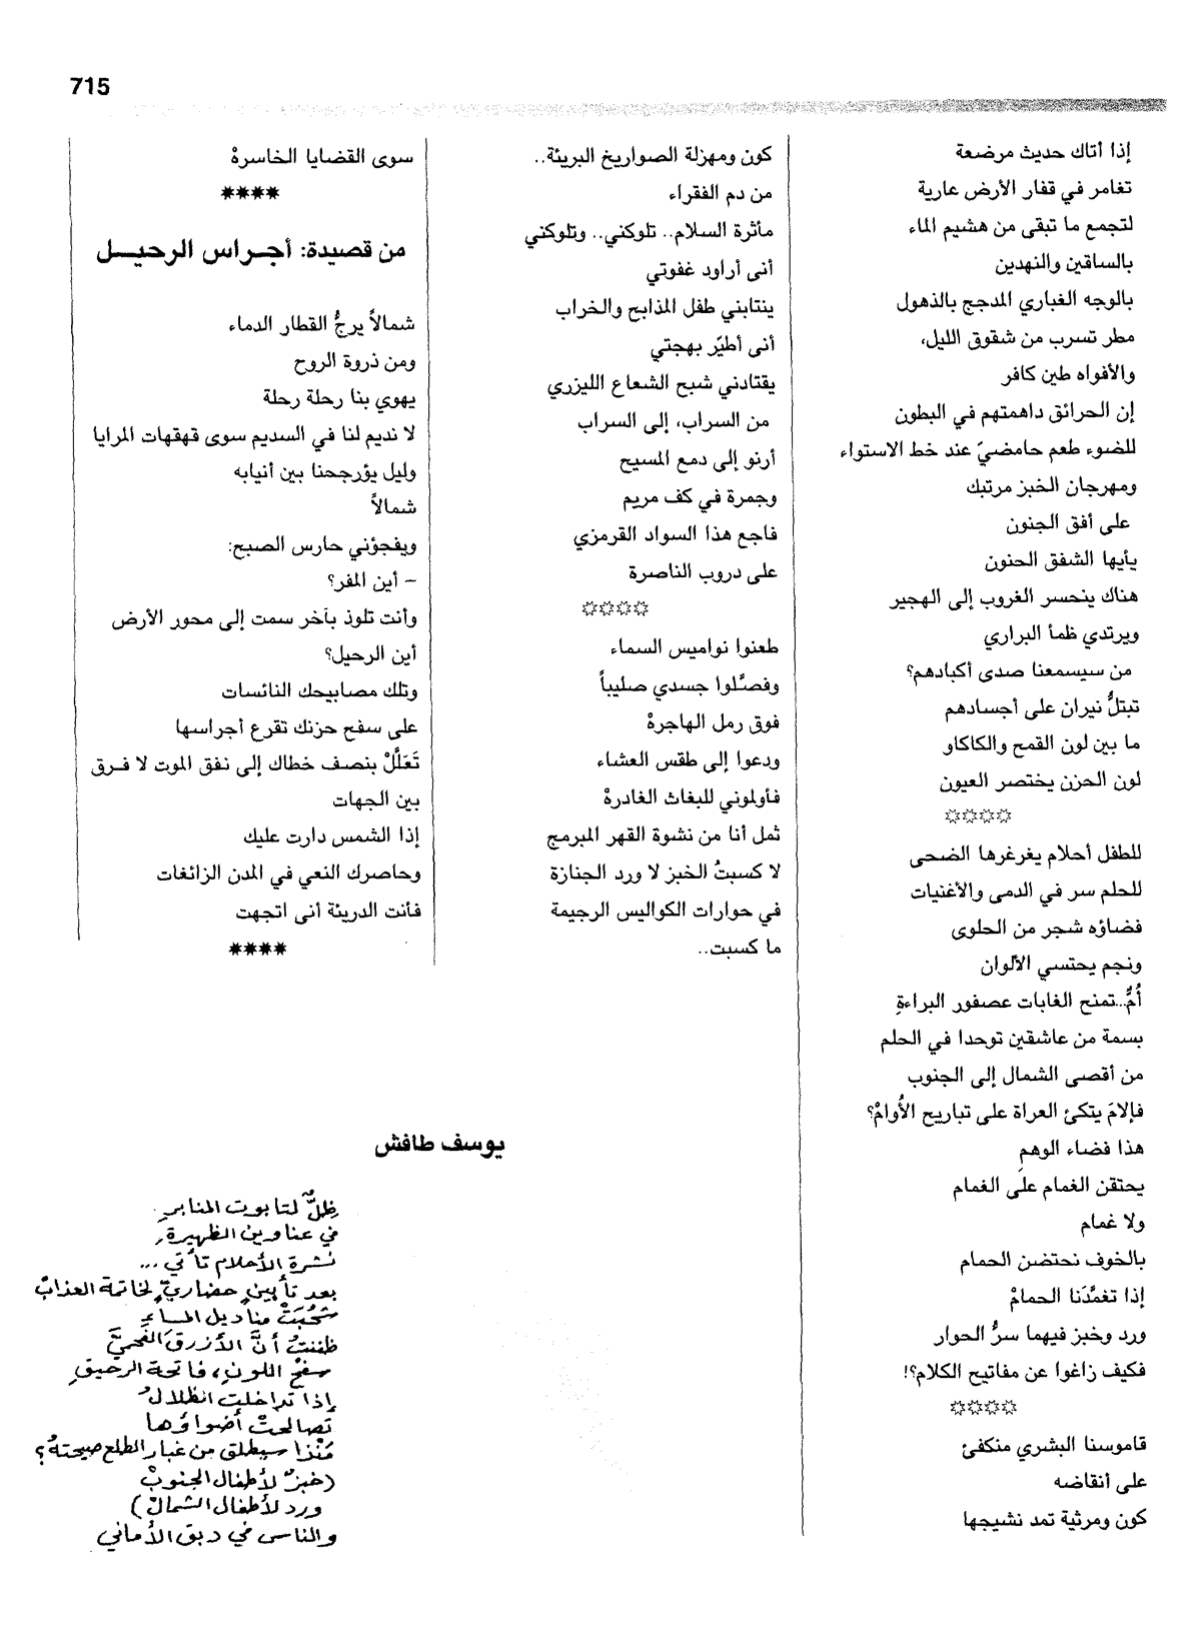 715
إذا أتاك حديث مرضعة
تغامر في قفار الأرض عارية
لتجمع ما تبقى من هشيم الماء
بالساقين والنهدين
بالوجه الغباري المدجج بالذهول
مطر تسرب من شقوق الليل،
والأفواه طين كافر
إن الحرائق داهمتهم في البطون
للضوء طعم حامضيّ عند خط الاستواء
ومهرجان الخبز مرتبك
على أفق الجنون
يأيها الشفق الحنون
هناك ينحسر الغروب إلى الهجير
ويرتدي ظمأ البراري
من سيسمعنا صدى أكبادهم؟
تبتلُّ نيران على أجسادهم
ما بين لون القمح والكاكاو
لون الحزن يختصر العيون
☼☼☼☼
للطفل أحلام يغرغرها الضحى
للحلم سر في الدمى والأغنيات
فضاؤه شجر من الحلوى
ونجم يحتسي الألوان
أُمٌّ..تمنح الغابات عصفور البراءةِ
بسمة من عاشقين توحدا في الحلم
من أقصى الشمال إلى الجنوب
فإلامَ يتكئ العراة على تباريح الأُوامْ؟
هذا فضاء الوهمِ
يحتقن الغمام على الغمام
ولا غمام
بالخوف نحتضن الحمام
إذا تغمَّدَنا الحمامْ
ورد وخبز فيهما سرُّ الحوار
فكيف زاغوا عن مفاتيح الكلام؟!
☼☼☼☼
قاموسنا البشري منكفئ
على أنقاضه
كون ومرثية تمد نشيجها
كون ومهزلة الصواريخ البريئة..
من دم الفقراء
مأثرة السلام.. تلوكني.. وتلوكني
أنى أراود غفوتي
ينتابني طفل المذابح والخراب
أنى أطيّر بهجتي
يقتادني شبح الشعاع الليزري
من السراب، إلى السراب
أرنو إلى دمع المسيح
وجمرة في كف مريم
فاجع هذا السواد القرمزي
على دروب الناصرة
☼☼☼☼
طعنوا نواميس السماء
وفصَّلوا جسدي صليباً
فوق رمل الهاجرهْ
ودعوا إلى طقس العشاء
فأولموني للبغاث الغادرهْ
ثمل أنا من نشوة القهر المبرمج
لا كسبتُ الخبز لا ورد الجنازة
في حوارات الكواليس الرجيمة
ما كسبت..
سوى القضايا الخاسرهْ
****
من قصيدة: أجـراس الرحيـل
شمالاً يرجُّ القطار الدماء
ومن ذروة الروح
يهوي بنا رحلة رحلة
لا نديم لنا في السديم سوى قهقهات المرايا
وليل يؤرجحنا بين أنيابه
شمالاً
ويفجؤني حارس الصبح:
– أين المفر؟
وأنت تلوذ بآخر سمت إلى محور الأرض
أين الرحيل؟
وتلك مصابيحك النائسات
على سفح حزنك تقرع أجراسها
تَعَلَّلْ بنصف خطاك إلى نفق الموت لا فـرق
بين الجهات
إذا الشمس دارت عليك
وحاصرك النعي في المدن الزائغات
فأنت الدريئة أنى اتجهت
****
يوسف طافش
ظِلٌّ لتابوت المنابرِ
في عناوين الظهيرةِ
نشرة الأحلام تأتي ...
بعد تأبينٍ حضاريٍّ لخاتمة العذابْ
سَحُبَتْ مناديل المساءِ
ظننتُ أنَّ الأزرقَ الفحميَّ
سفحُ اللونِ، فاتحة الرحيقِ
إذا تداخلت الظلالُ
تصالحتْ أضواؤها
مَنْذا سيطلق من غبار الطلع صيحتهُ؟
(خبزٌ لأطفال الجنوبْ
وردٌ لأطفال الشمالْ)
والناس في دبق الأماني